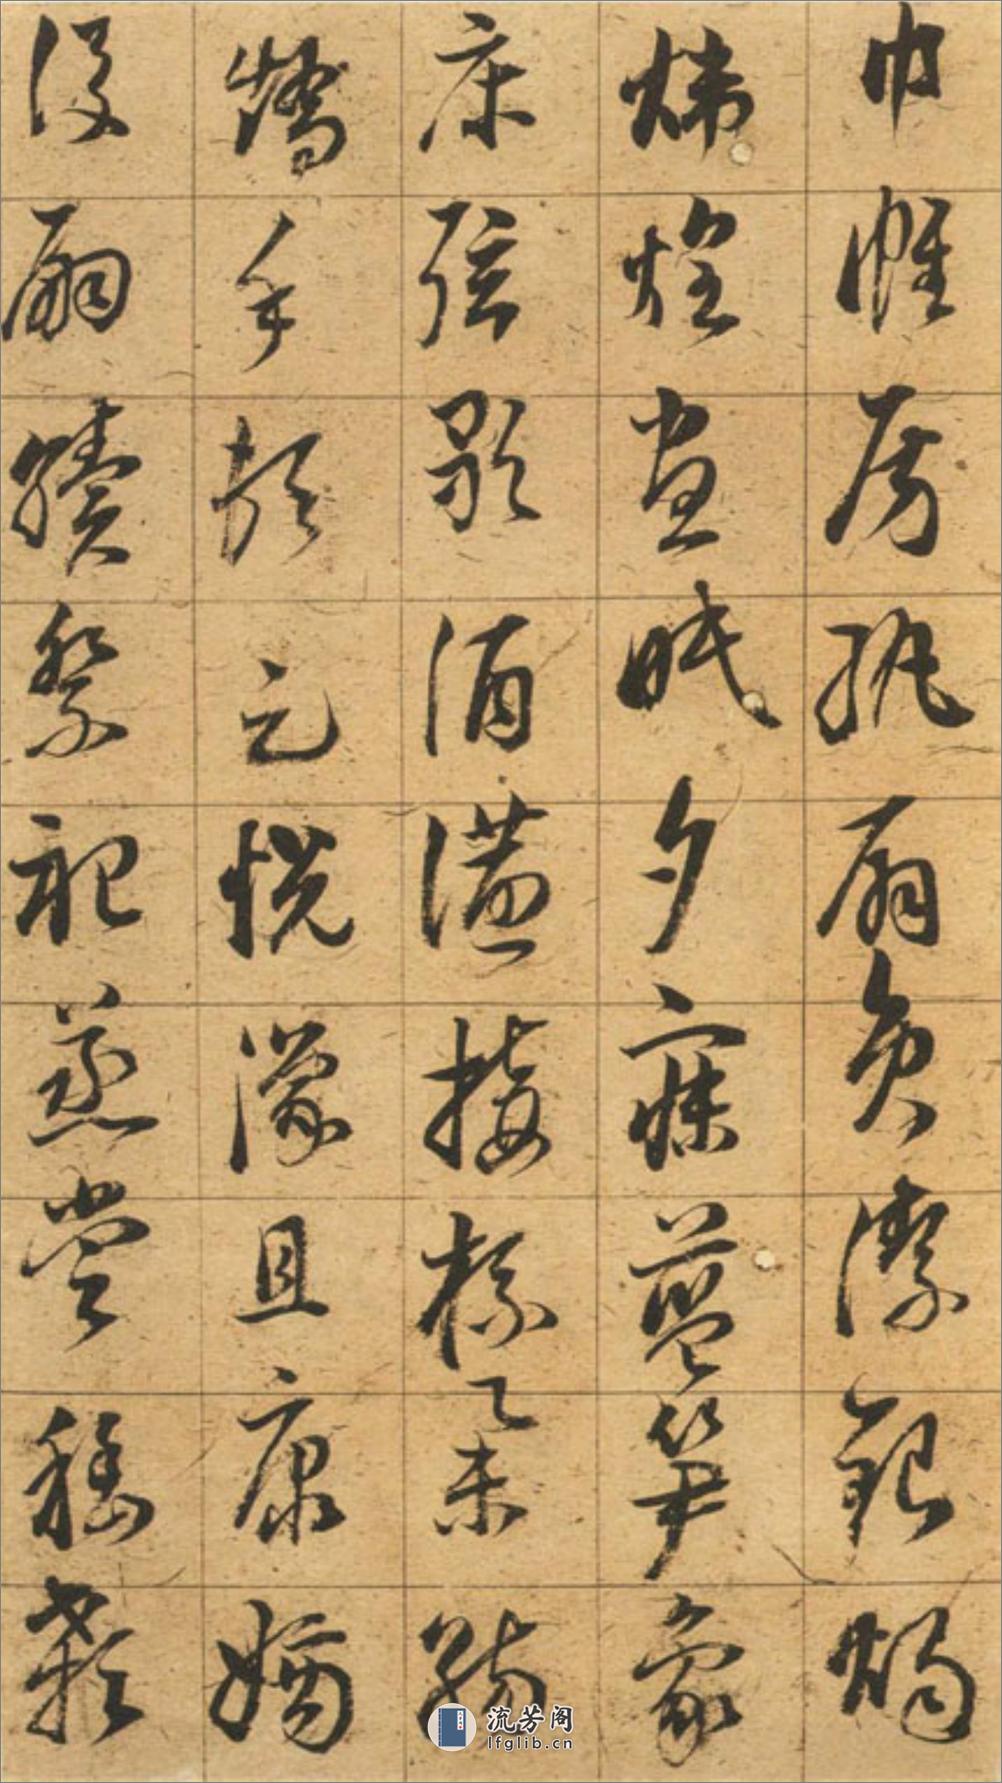 巾帷房紈扇員潔銀燭
煒煌晝眠夕寐藍笋象
床弦歌酒讌接杯舉觴
矯手頓足悅豫且康嫡
後嗣續祭祀蒸嘗稽顙
流芳阁
lfglib.cn